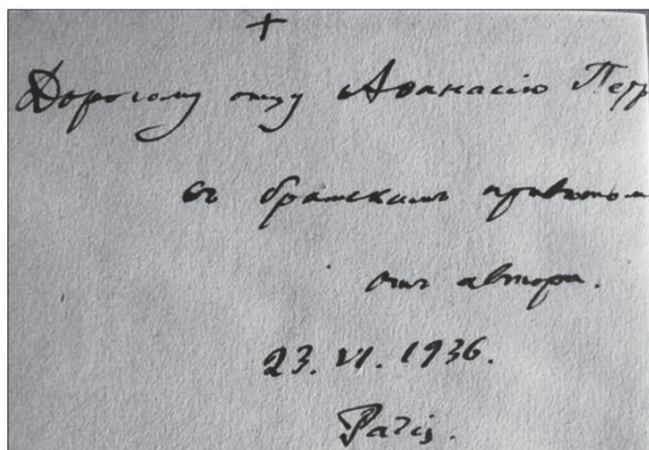 +
Дорогому отцу Аѳанасію
съ братскимъ привѣтом
отъ автора.
23. VI. 1936.
Paris.